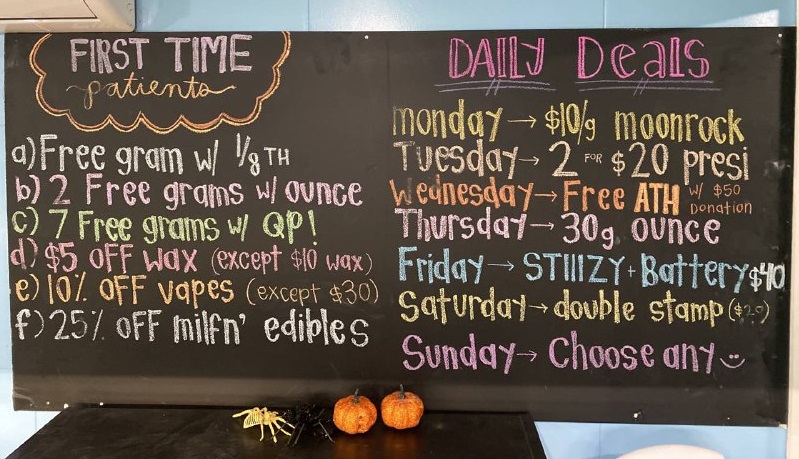 FIRST TIME
patients
a) Free gram w/ 1/8TH
b) 2 Free grams w/ ounce
c) 7 Free grams w/ QP!
d) $5 OFF wax (except $10 wax)
e) 10% OFF vapes (except $30)
f) 25% OFF milfn' edibles
DAILY DealS
monday → $10/g moonrock
Tuesday → 2 FOR $20 presi
Wednesday → Free ATH w/ $50
Donation
Thursday → 30g ounce
Friday → STIIIZY + Battery $40
Saturday → double stamp ($20)
Sunday → Choose any